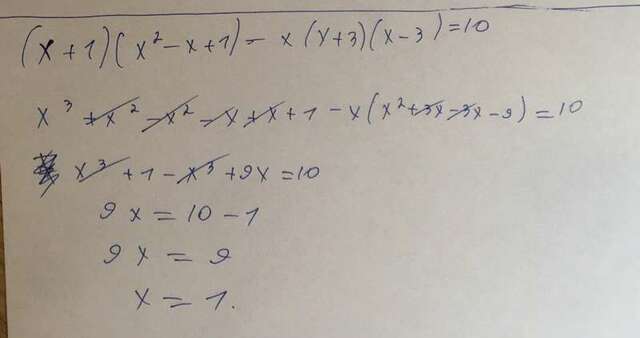 (x+1)(x²-x+1)-x(x+3)(x-3)=10
x³+x²-x²-x+x+1-x(x²+3x-3x-9)=10
x³+1-x³+9x=10
9x=10-1
9x=9
x=1.